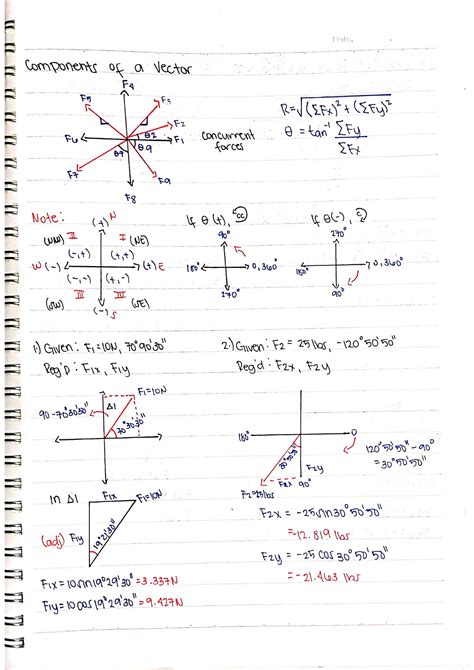 Components of a Vector
F4
F5
F3
F2
F6
F1
θ2
θ9
θ7
F7
F8
F9
concurrent
forces
R=√(ΣFx)²+(ΣFy)²
θ = tan⁻¹ ΣFy
ΣFx
Note:
(+) N
(NW) II
I (NE)
(-,+)
(+,+)
W (-)
(+) E
(-,-)
(+,-)
(SW) III
IV (SE)
(-) S
If θ (+),
90°
180°
0, 360°
270°
If θ(-),
270°
180°
0, 360°
90°
1) Given: F1=10N, 70°90'30"
Req'D: F1x, F1y
F1=10N
90-70°30'30"
Δ1
70°30'30"
in Δ1
F1x
F1=10N
(adj) F1y
19°29'30"
F1x=10sin19°29'30"=3.337N
F1y=10cos19°29'30"=9.427N
2) Given: F2 = 25lbs, -120°50'50"
Req'd: F2x, F2y
180°
0
30°50'50"
F2y
F2x
90°
F2=25lbs
120°50'50" - 90°
=30°50'50"
F2x = -25sin30°50'50"
=-12.819 lbs
F2y = -25 cos 30°50'50"
= -21.463 lbs